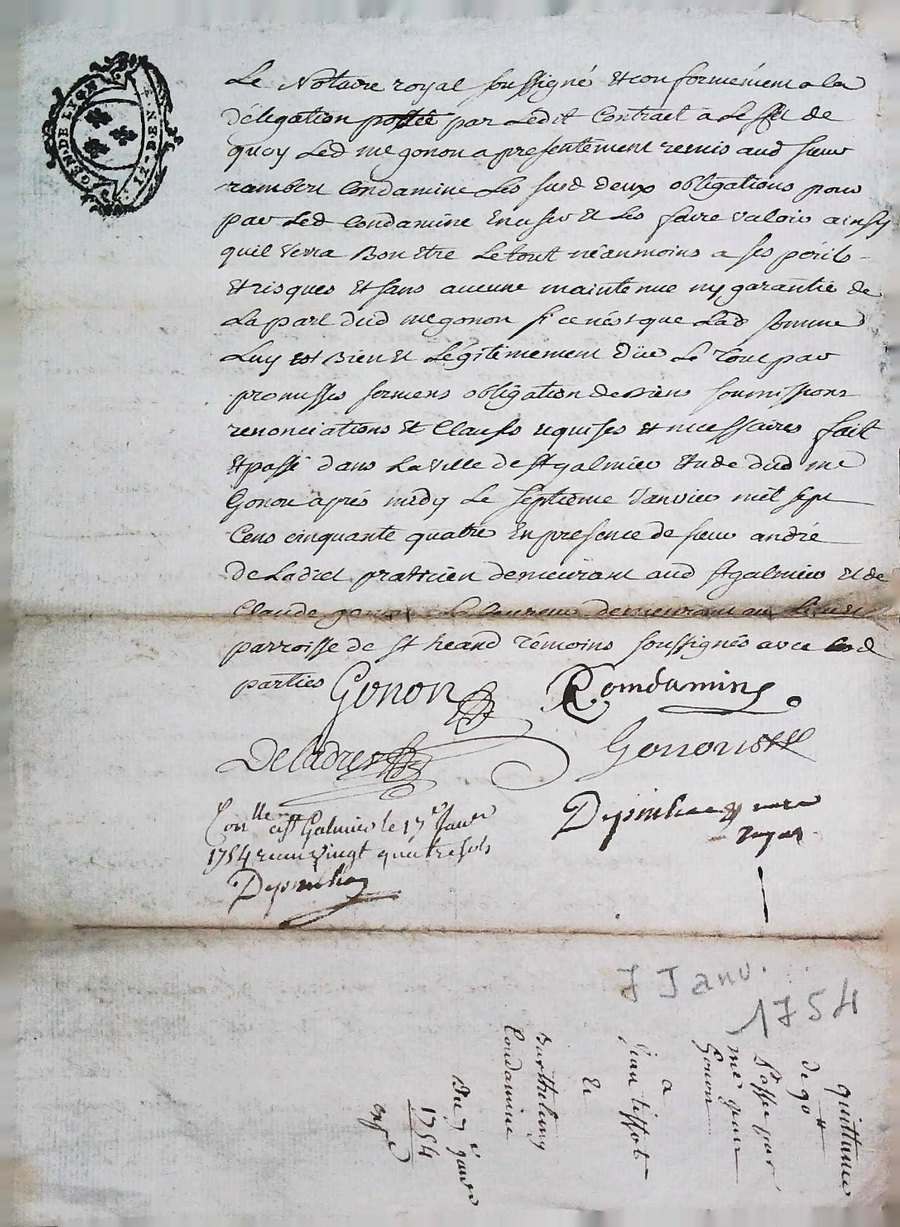 GEN DE LION
Le Notaire royal soussigné et conformement a la
délegation portée par Ledit Contract a Leffet de
quoy Led me gonon a presentement remis aud sieur
rambert Condamine Les susd deux obligations pour
par Led Condamine En user et Les faire valoir ainsy
quil verra Bon Etre Le tout néanmoins a ses périls
Et risques Et sans aucune maintenue ny garantie de
La part dud me gonon si ce nést que Lad somme
Luy Est Bien et Légitimement düe Le tout par
promesses sermens obligation de biens soumissions
renonciations Et Clauses requises et necessaires fait
Et passé dans La ville de St galmier Etude dud me
Gonon aprés midy Le septieme Janvier mil sept
Cens cinquante quatre En presence de sieur andré
De Ladret praticien demeurant aud St galmier et de
Claude gonon demeurant au
parroisse de St heand témoins soussignés avec Lesd
parties Gonon RCondamine
Deladret Gonon
Conlle a St Galmier le 17e Janvr
1754 recu vingt quatre sols
Depinhac
Depinhac nore
royal
7 Janv.
1754
quittance
de 90 #
passée par
me jean
Gonon
a
jean tissot
Et
Barthelemy
Condamine
Du 7e janvr
1754
expé